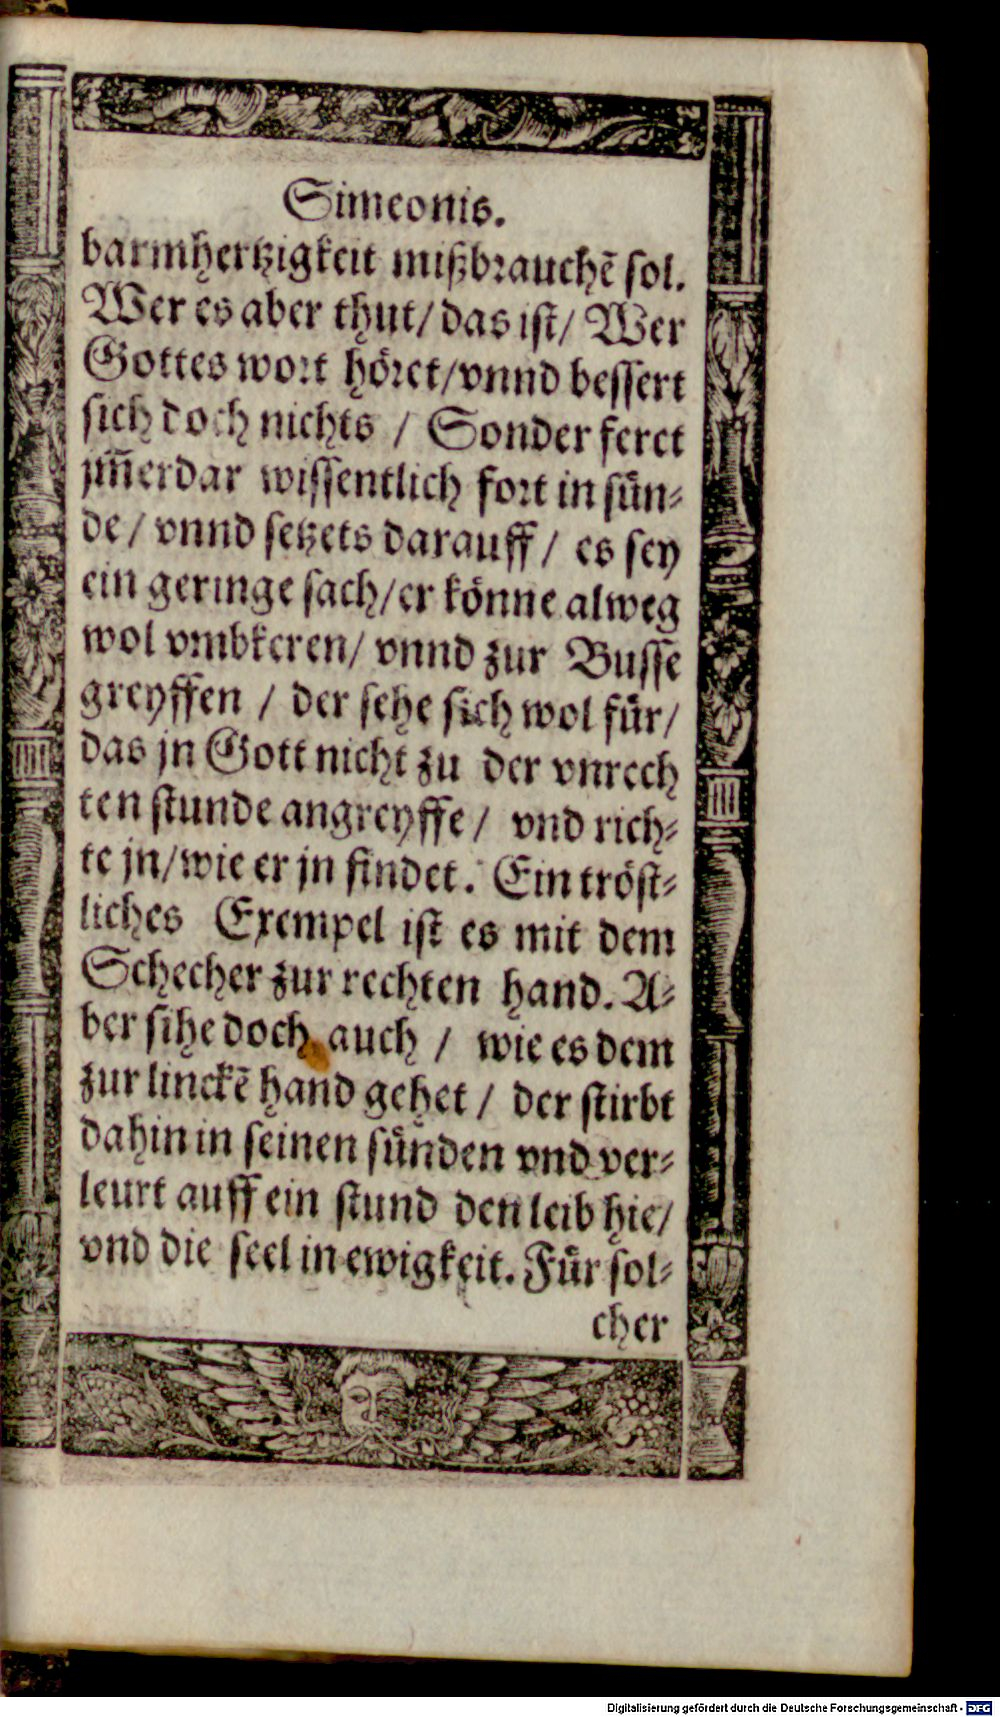 Simeonis.
barmhertzigkeit mißbrauchē sol.
Wer es aber thut/ das ist/ Wer
Gottes wort höret/vnnd bessert
sich doch nichts / Sonder feret
jm̃erdar wissentlich fort in sün-
de/ vnnd setzets darauff/ es sey
ein geringe sach/er könne alweg
wol vmbkeren/ vnnd zur Busse
greyffen / der sehe sich wol für/
das jn Gott nicht zu der vnrech
ten stunde angreyffe/ vnd rich-
te jn/wie er jn findet. Ein tröst-
liches Exempel ist es mit dem
Schecher zur rechten hand. A-
ber sihe doch auch / wie es dem
zur linckē hand gehet / der stirbt
dahin in seinen sünden vnd ver-
leurt auff ein stund den leib hie/
vnd die seel in ewigkeit. Für sol-
cher
Digitalisierung gefördert durch die Deutsche Forschungsgemeinschaft - DFG